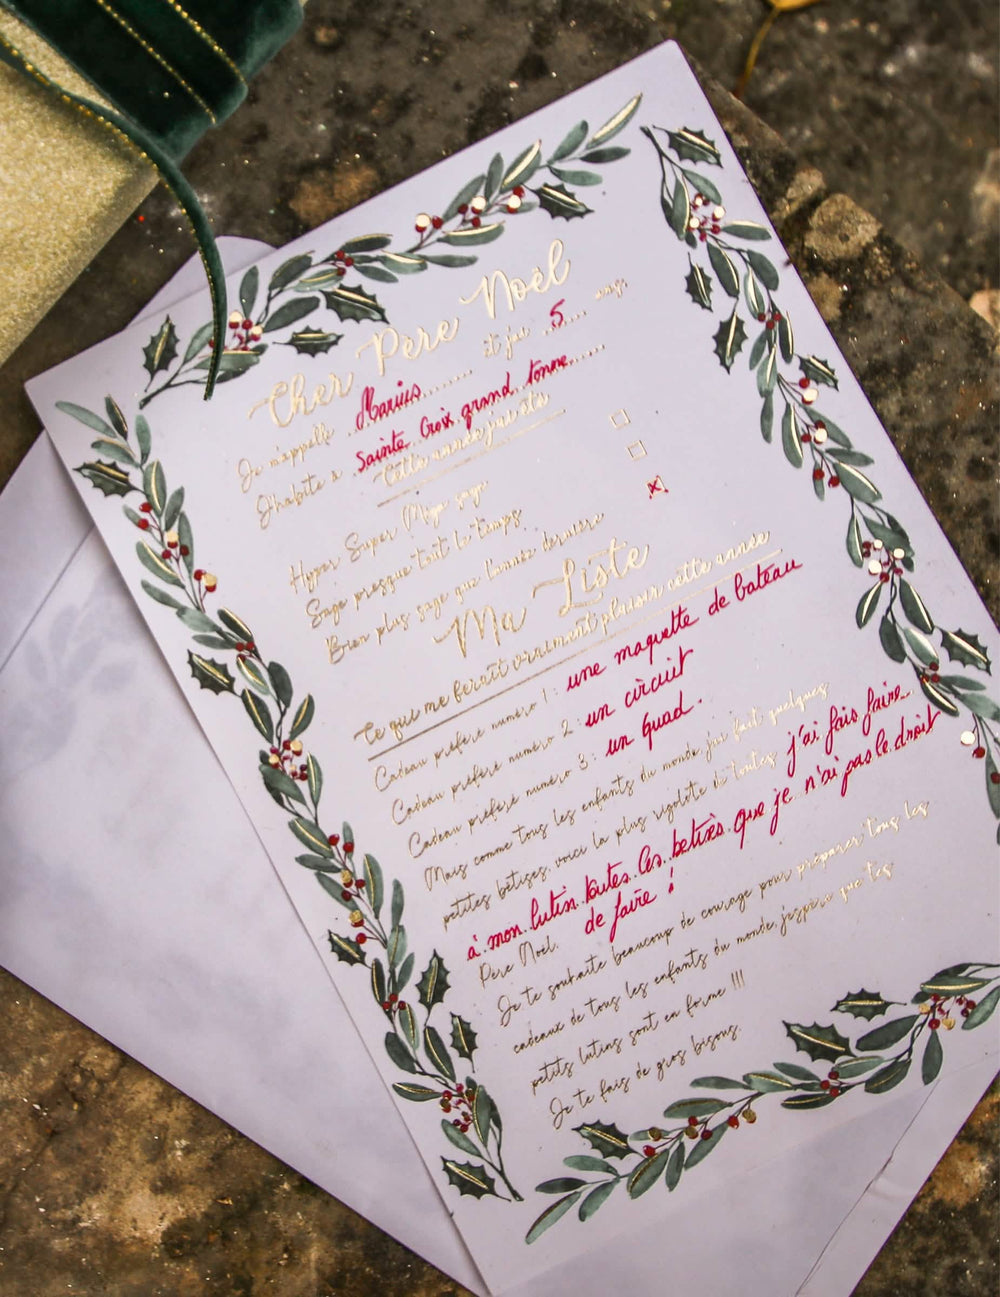 Cher Père Noël
Je m'appelle Marius et j'ai 5 ans
J'habite à Sainte Croix grand tonne
Cette année j'ai été
Hyper Super Méga sage
Sage presque tout le temps
Bien plus sage que l'année dernière
Ma Liste
Ce qui me ferait vraiment plaisir cette année
Cadeau préféré numéro 1: une maquette de bateau
Cadeau préféré numéro 2: un circuit
Cadeau préféré numéro 3: un quad.
Mais comme tous les enfants du monde j'ai fait quelques
petites bêtises, voici la plus rigolote de toutes j'ai fais faire
à mon lutin toutes les bêtises que je n'ai pas le droit
Père Noël, de faire !
Je te souhaite beaucoup de courage pour préparer tous les
cadeaux de tous les enfants du monde, j'espère que tes
petits lutins sont en forme !!!
Je te fais de gros bisous.